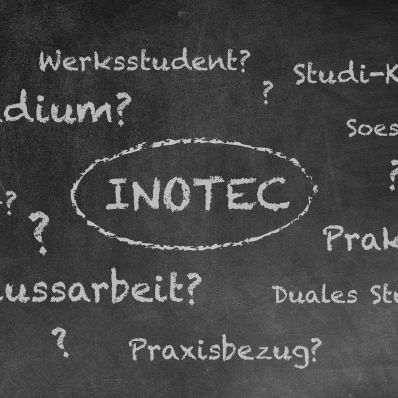 Werksstudent?
?
Studi-K
dium?
Soes
?
INOTEC
?
?
Prak
ussarbeit?
Duales Stu
?
Praxisbezug?